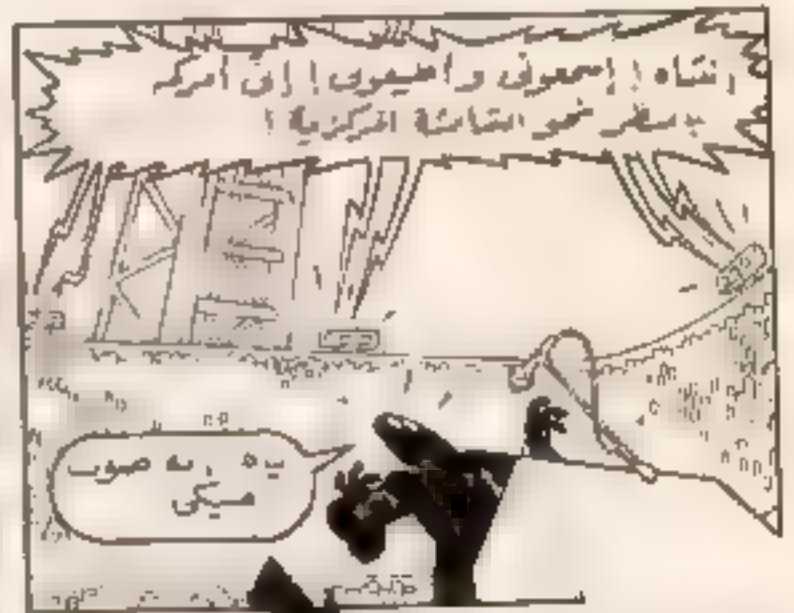 انتباه ! إسمعونى وأطيعونى ! إنى آمركم
بالنظر نحو الشاشة المركزية !
إنه صوت
ميكى